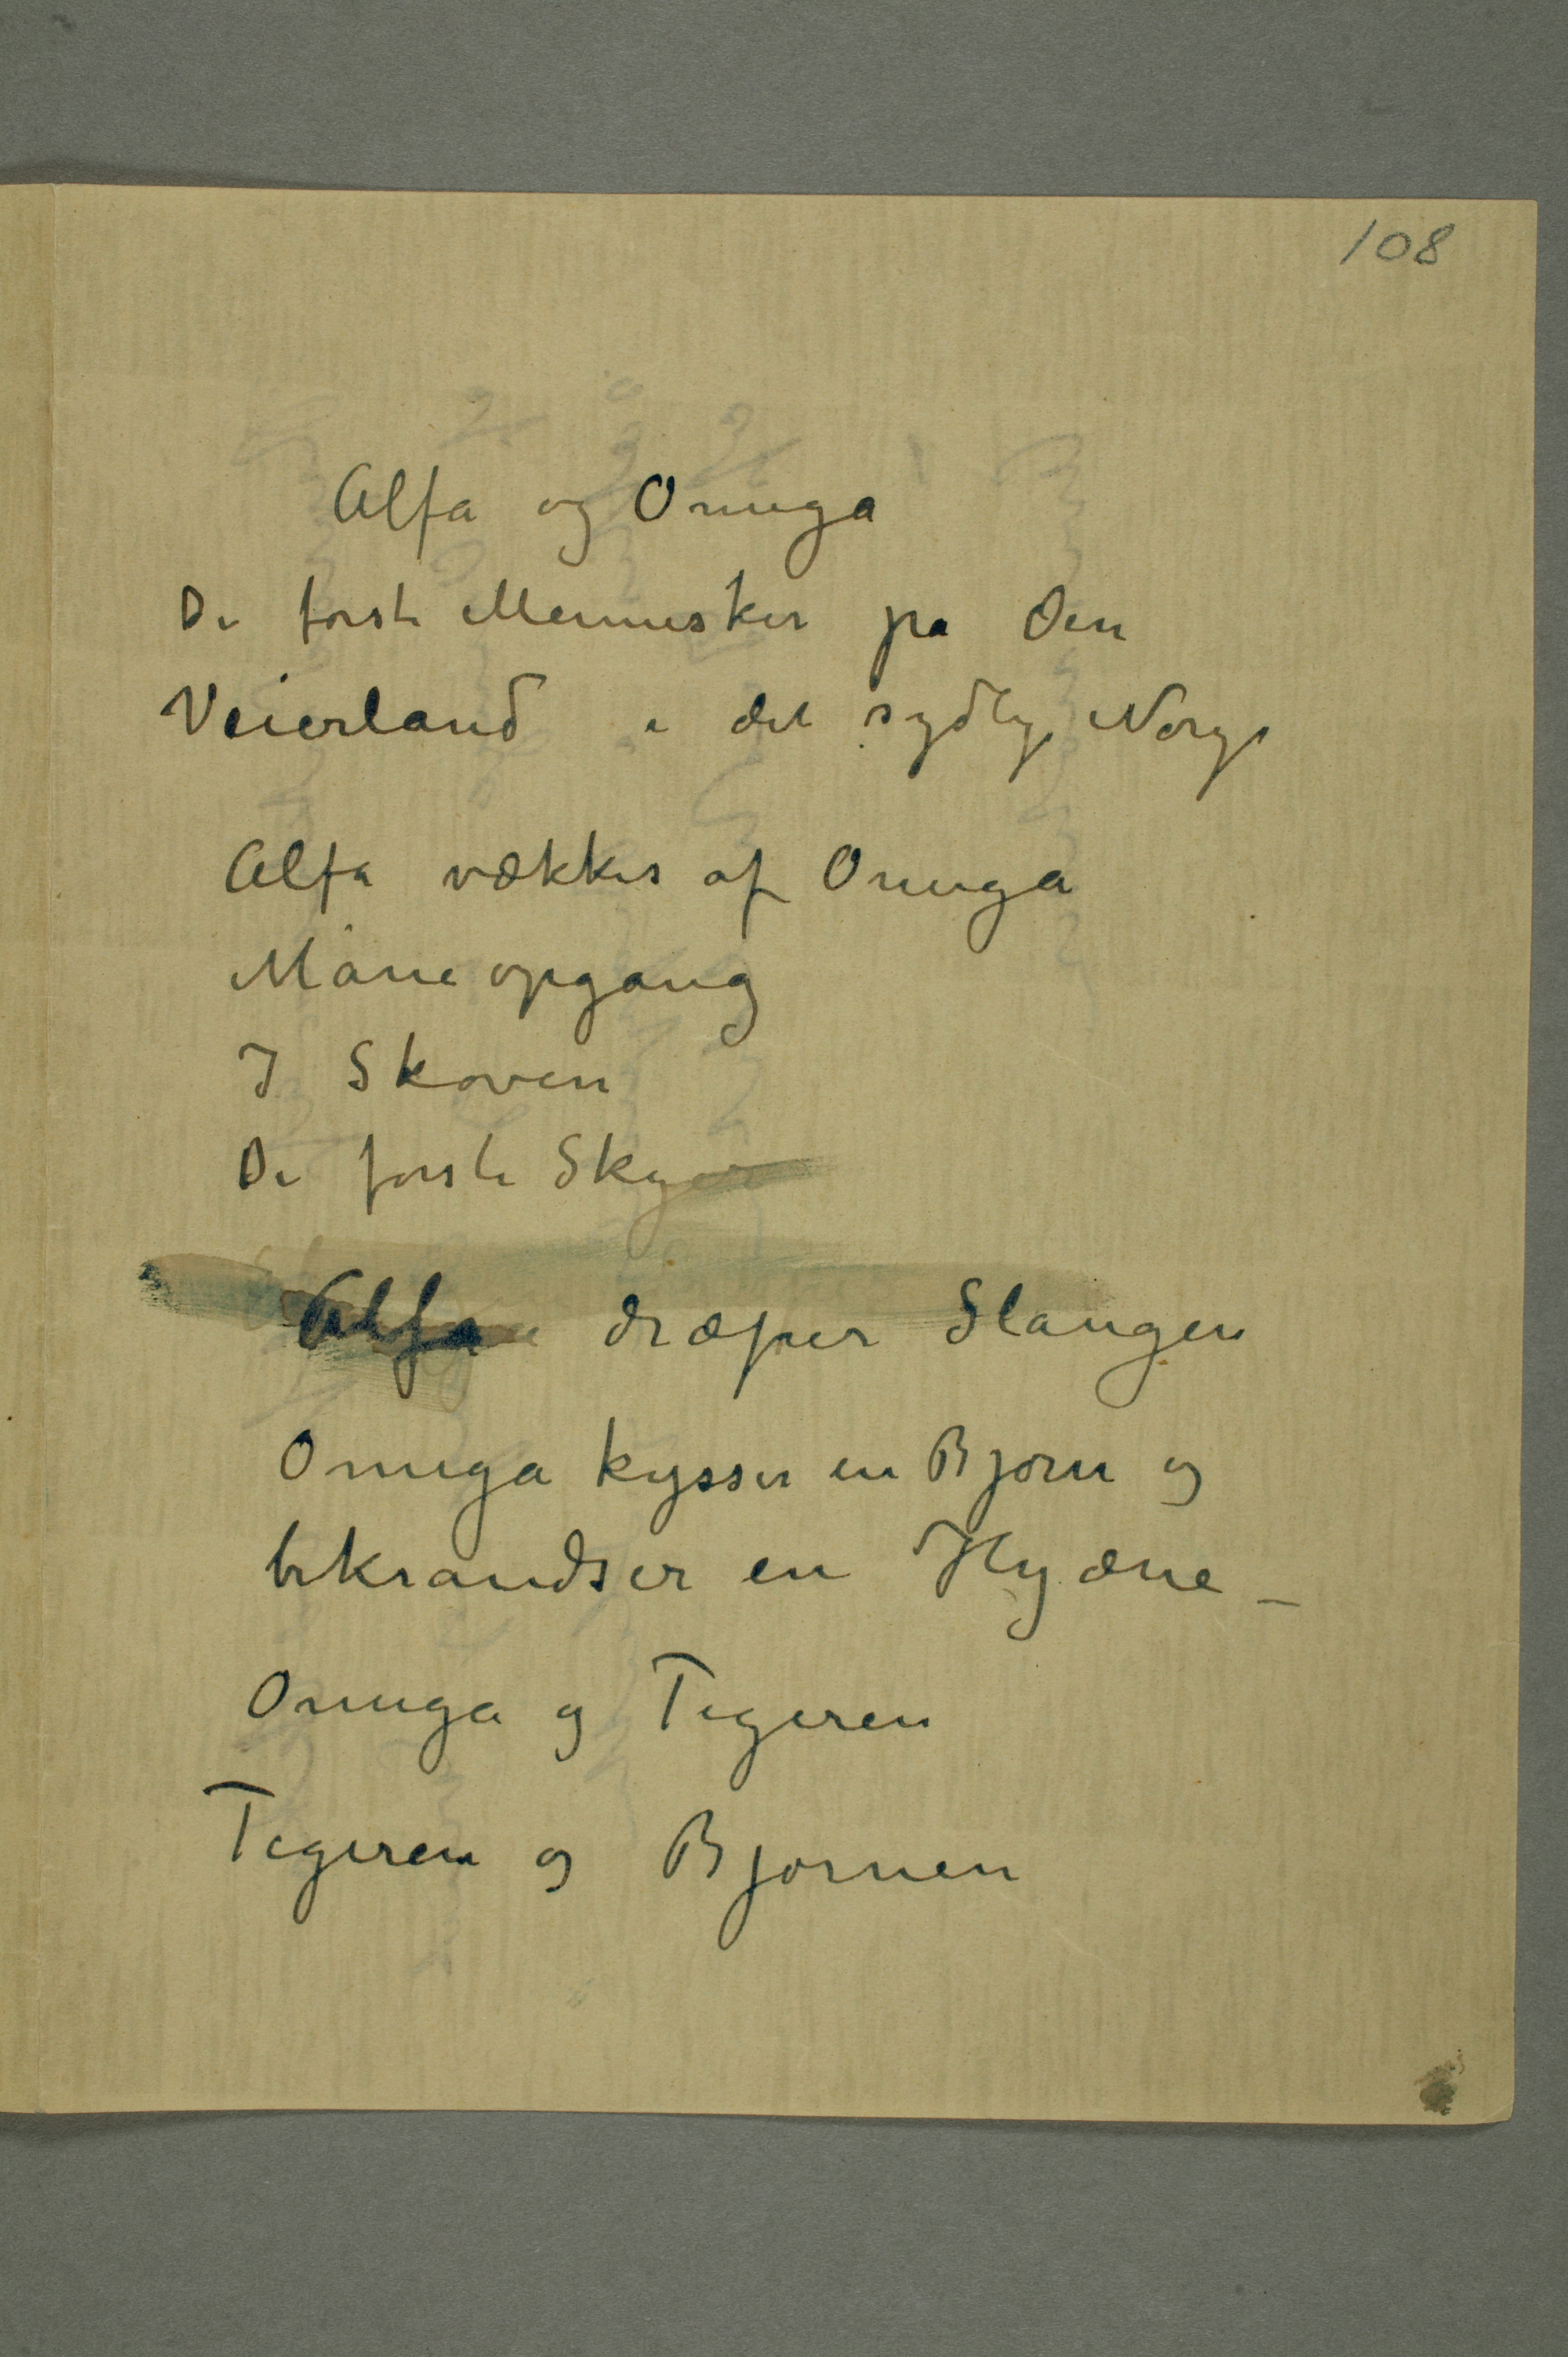 108
Alfa og Omega
De første Mennesker på Øen
Veierland i det sydlige Norge
Alfa vækkes af Omega
Måneopgang
I Skoven
De første Skyer
Alfa dræper Slangen
Omega kysser en Bjørn og
bekrandser en Hyæne –
Omega og Tigeren
Tigeren og Bjørnen